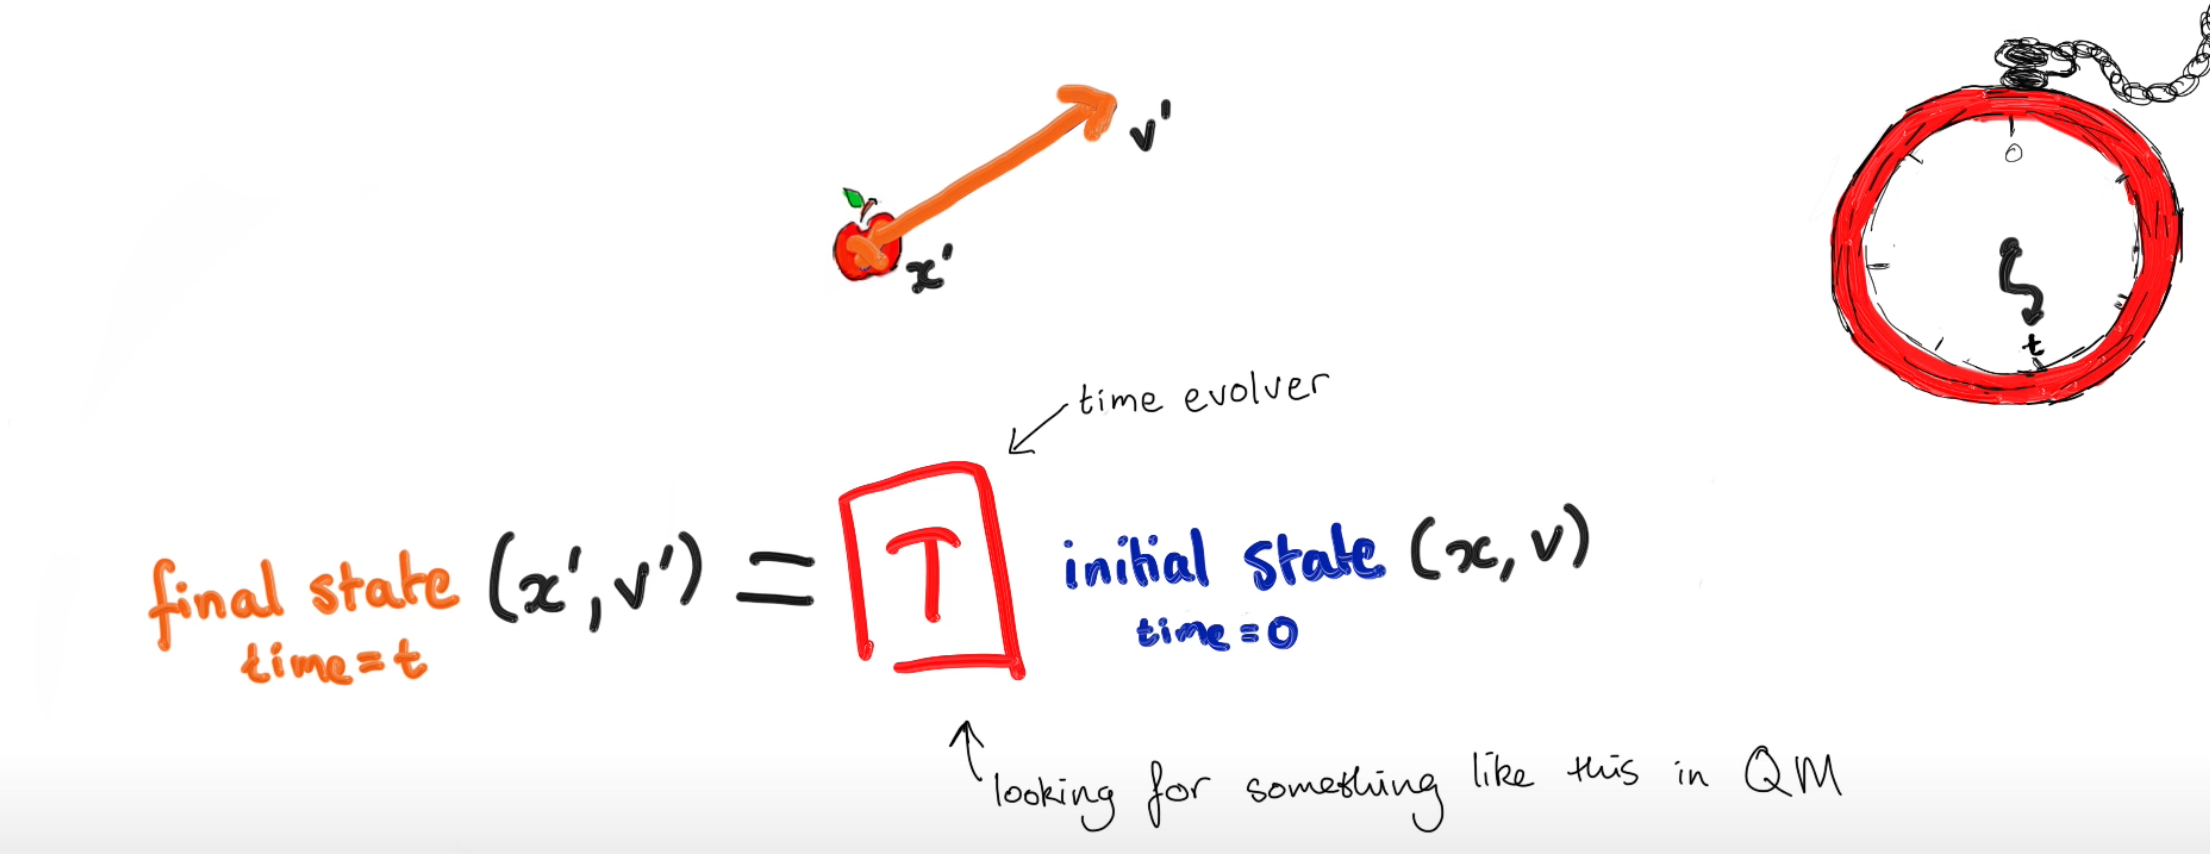 v'
x'
0
t
time evolver
final state (x', v') = T initial state (x, v)
time = t
time = 0
looking for something like this in QM